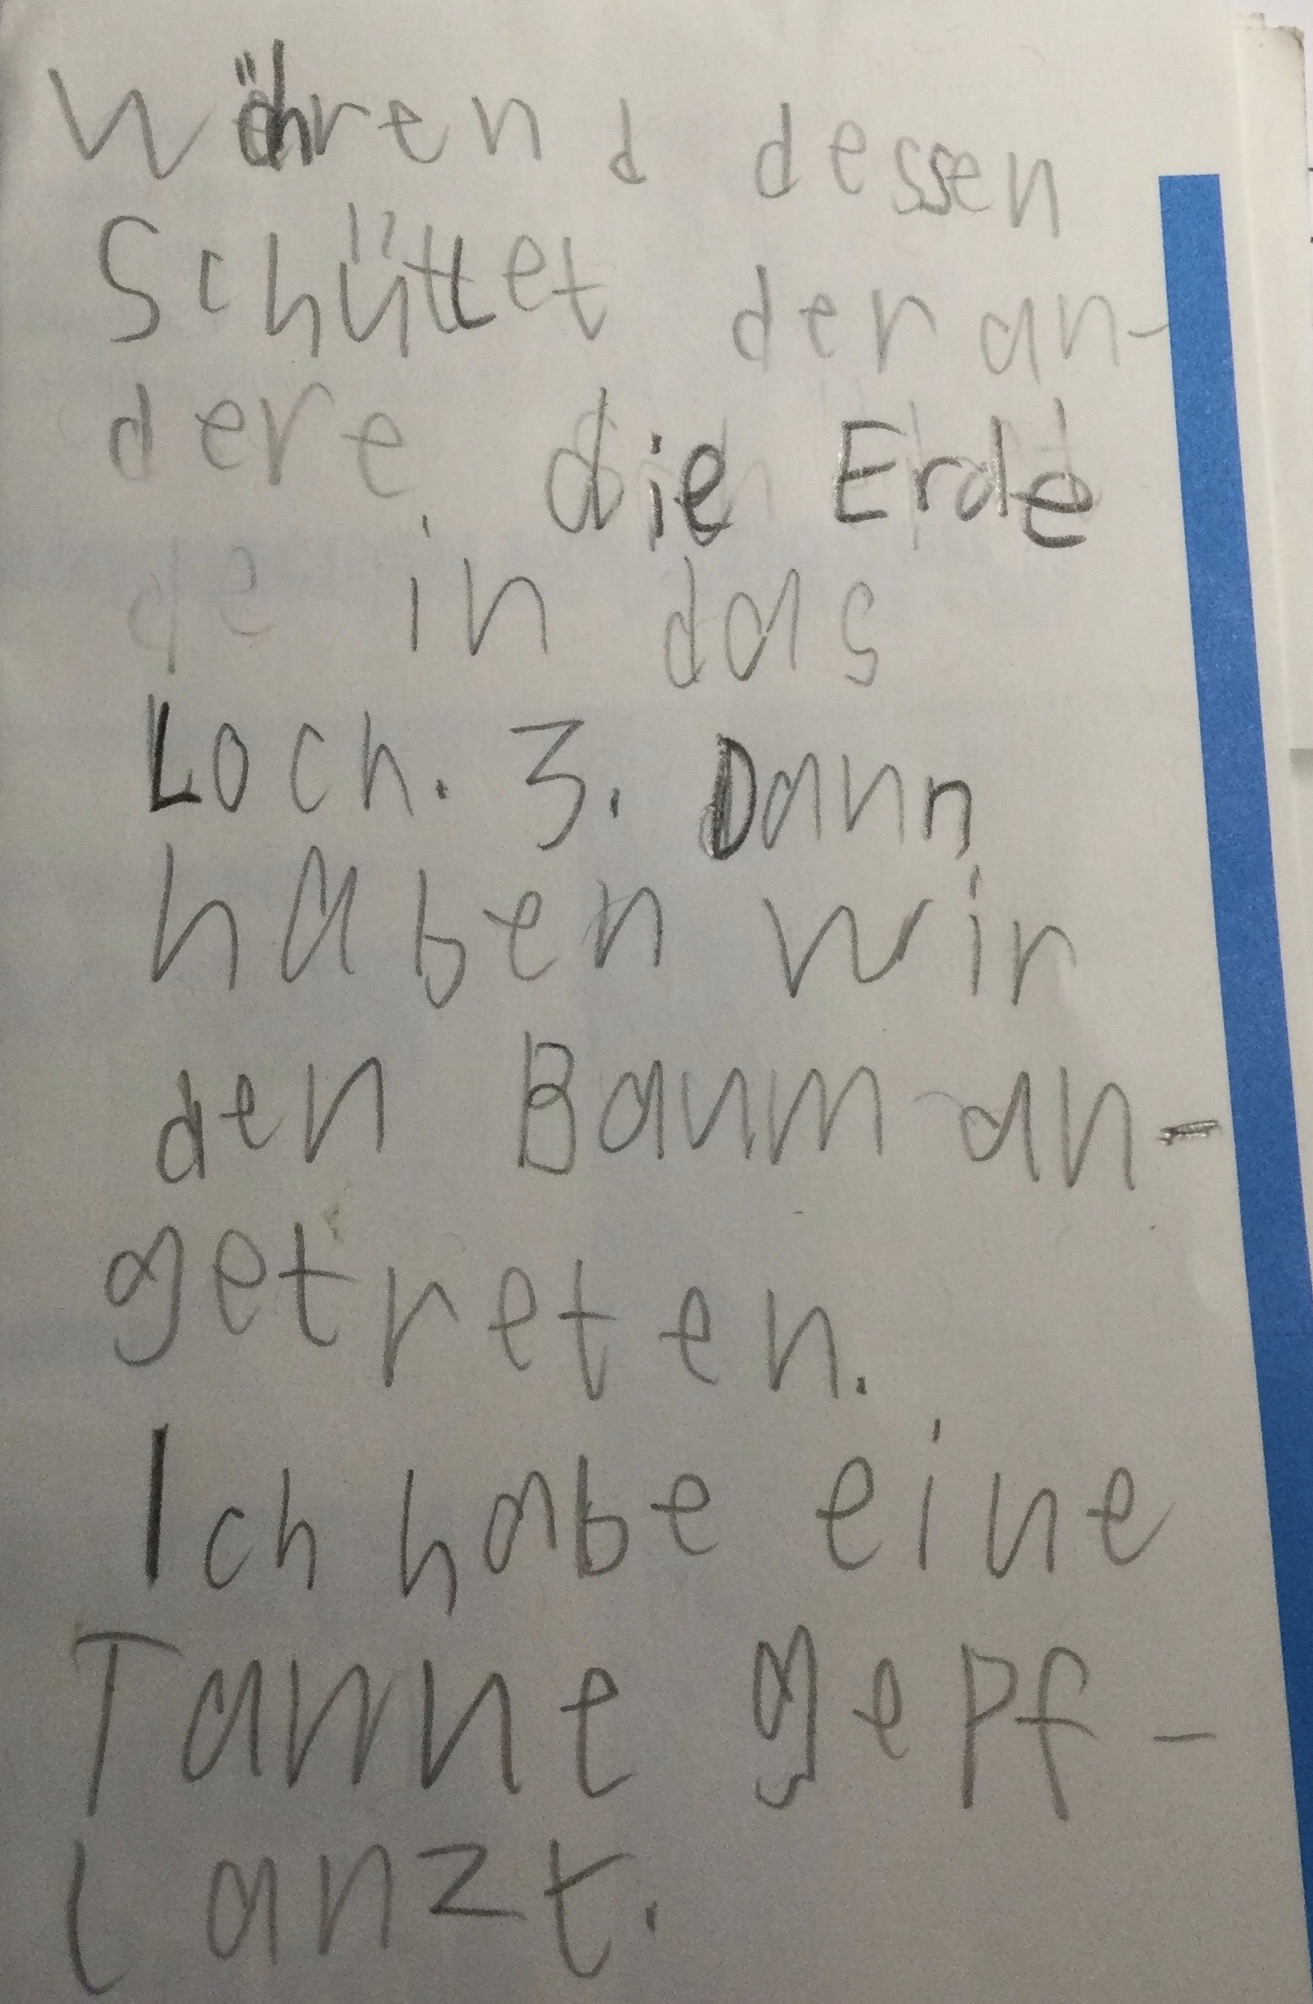 Während dessen
Schüttet der an-
dere die Erde
in das
Loch. 3. Dann
haben wir
den Baum an-
getreten.
Ich habe eine
Tanne gepf-
lanzt.